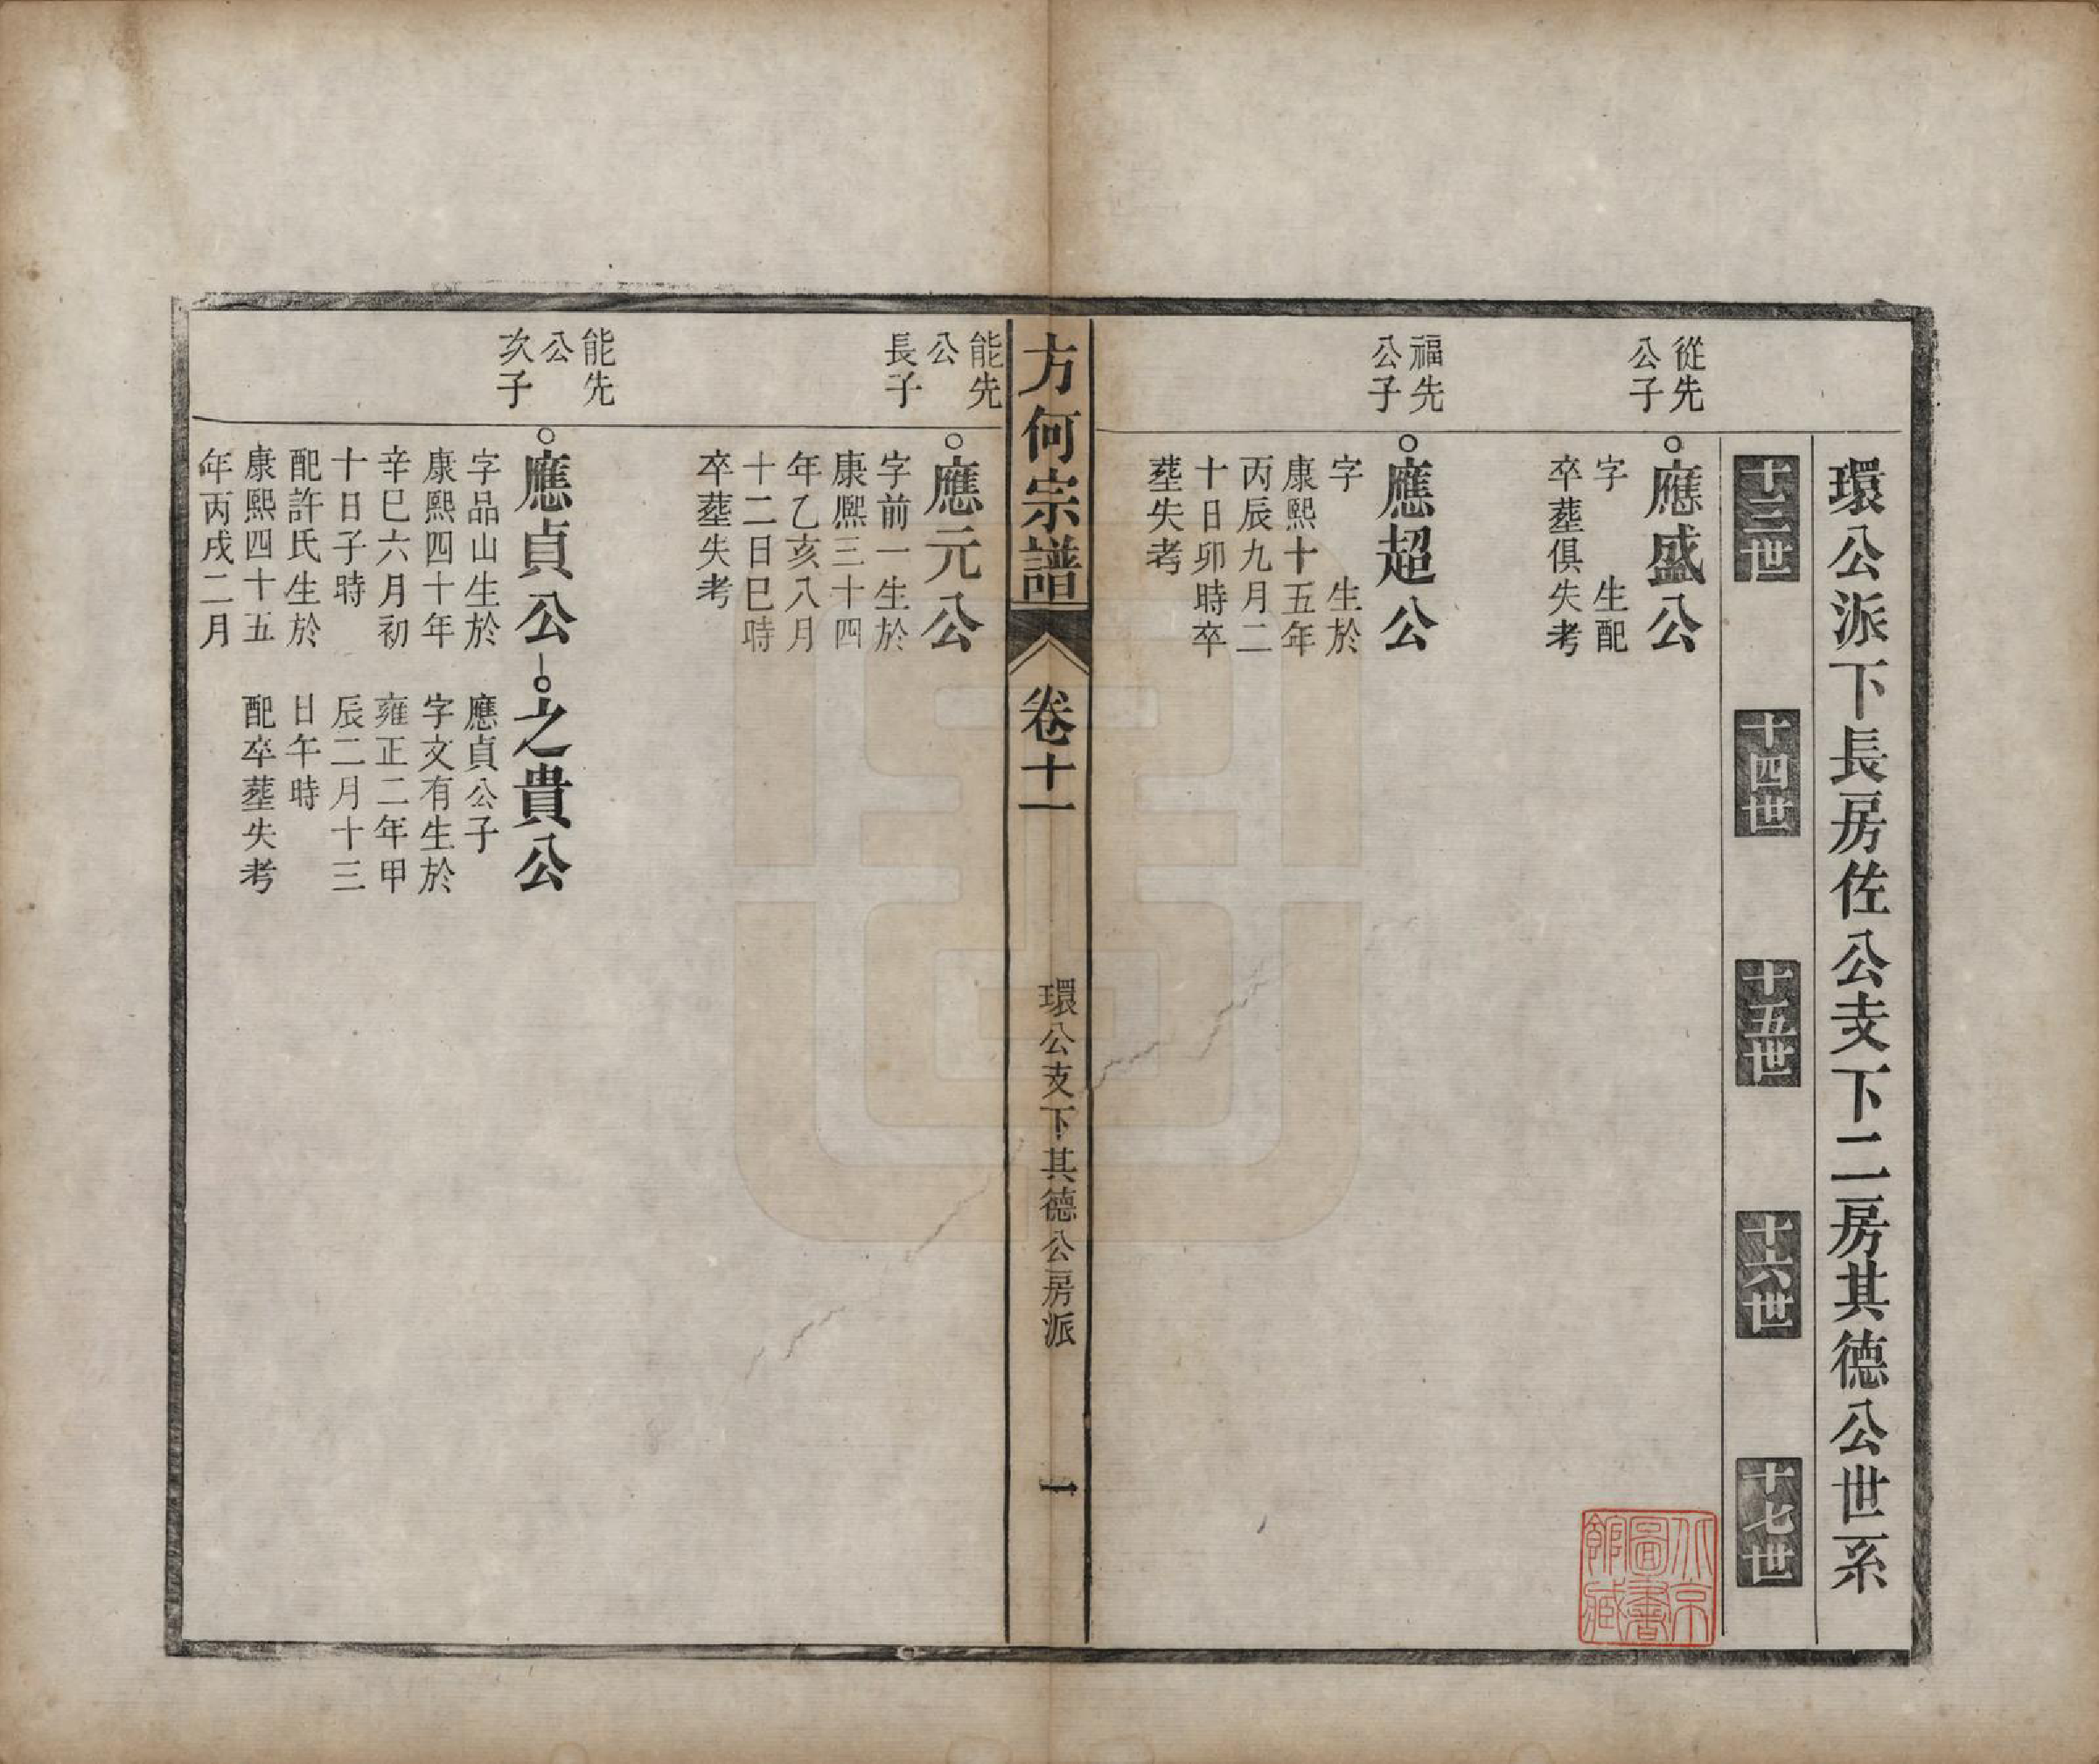 環公派下長房佐公支下二房其德公世系
十三世
十四世
十五世
十六世
十七世
從先
公子
應盛公
字 生配
卒塟俱失考
福先
公子
應超公
字 生於
康熙十五年
丙辰九月二
十日卯時卒
塟失考
方何宗譜
卷十一
環公支下其德公房派
一
能先
公
長子
應元公
字前一生於
康熈三十四
年乙亥八月
十二日巳時
卒塟失考
能先
公
次子
應貞公
字品山生於
康熙四十年
辛巳六月初
十日子時
配許氏生於
康熙四十五
年丙戌二月
之貴公
應貞公子
字文有生於
雍正二年甲
辰二月十三
日午時
配卒塟失考
北京
圖書
館藏